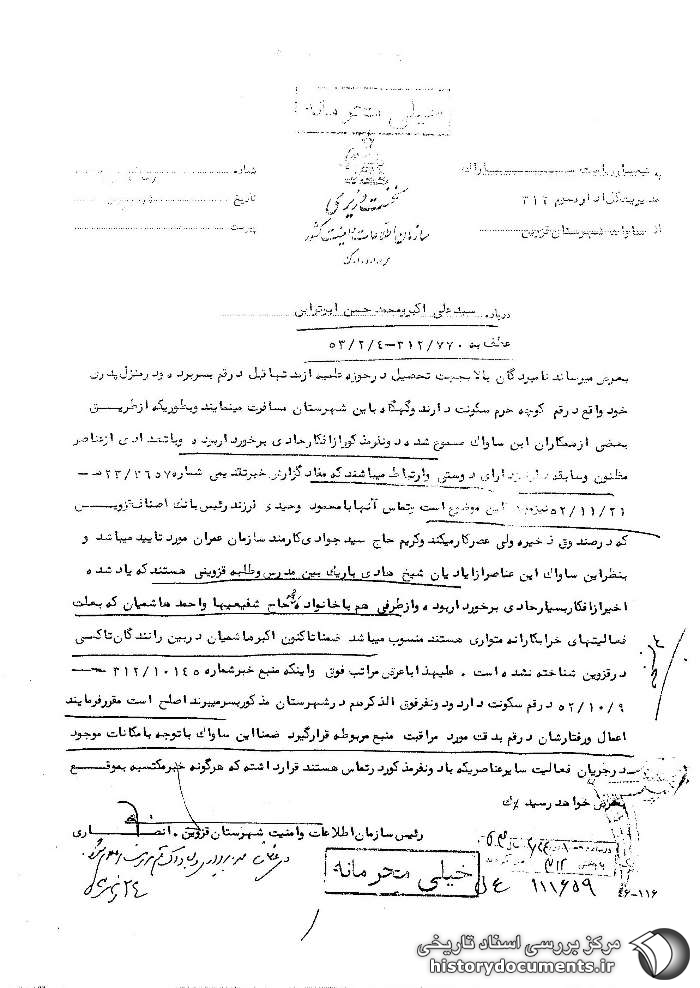 خیلی محرمانه
به تیمسار ریاست ساواک
شماره
نخست وزیری
مدیریت کل اداره سوم ۳۱۲
تاریخ
سازمان اطلاعات و امنیت کشور
از ساواک شهرستان قزوین
پیوست
س.ا.و.ا.ک
درباره سید علی اکبر و محمد حسن ابوترابی
عطف به ۳۱۲/۷۷۰-۵۳/۲/۴
بعرض میرساند نامبردگان بالا بجهت تحصیل در حوزه علمیه از مدتها قبل در قم بسر برده و در منزل پدری
خود واقع در قم کوچه حرم سکونت دارند و گهگاه باین شهرستان مسافرت مینمایند و بطوریکه از طریق
بعضی از همکاران این ساواک مسموع شده دو نفر مذکور از افکار حادی برخوردار بوده و با تعدادی از عناصر
مظنون و سابقه دار نیز دارای دوستی و ارتباط میباشند که مفاد گزارش خبر تقدیمی شماره ۲۳/۳۶۵۷ ه‍ -
۵۲/۱۱/۲۱ نیز این موضوع است تماس آنها با محمود وحیدی فرزند رئیس بانک اصناف قزوین
که در صندوق ذخیره ولی عصر کار میکند و کریم حاج سید جوادی کارمند سازمان عمران مورد تایید میباشد و
بنظر این ساواک این عناصر از ایادیان شیخ هادی باریک بین مدرس و طلبه قزوینی هستند که یاد شده
اخیر از افکار بسیار حادی برخوردار بوده و از طرفی هم با خانواده های حاج شفیعیها و احمد هاشمیان که بعلت
فعالیتهای خرابکارانه متواری هستند منسوب میباشد ضمنا تاکنون اکبر هاشمیان در بین رانندگان تاکسی
در قزوین شناخته نشده است . علیهذا با عرض مراتب فوق و اینکه منبع خبر شماره ۳۱۲/۱۰۱۴۵ -
۵۲/۱۰/۹ در قم سکونت دارد و دو نفر فوق الذکر هم در شهرستان مذکور بسر میبرند اصلح است مقرر فرمایند
اعمال و رفتارشان در قم بدقت مورد مراقبت منبع مربوطه قرار گیرد ضمنا این ساواک با توجه با مکانات موجود
در جریان فعالیت سایر عناصریکه با دو نفر مذکور در تماس هستند قرار داشته که هرگونه خبر مکتسبه بموقع
بعرض خواهد رسید
رئیس سازمان اطلاعات و امنیت شهرستان قزوین . انصاری
خیلی محرمانه
۱۱۱۶۵۹
۴۶-۱۱۶
مرکز بررسی اسناد تاریخی
historydocuments.ir